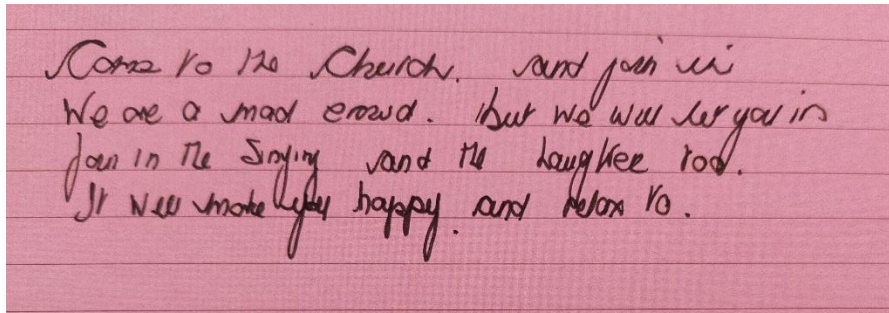 Come to the Church. and join in
We are a mad crowd. but we will let you in
Join in the Singing and the laughter too.
It will make you happy. and relax to.